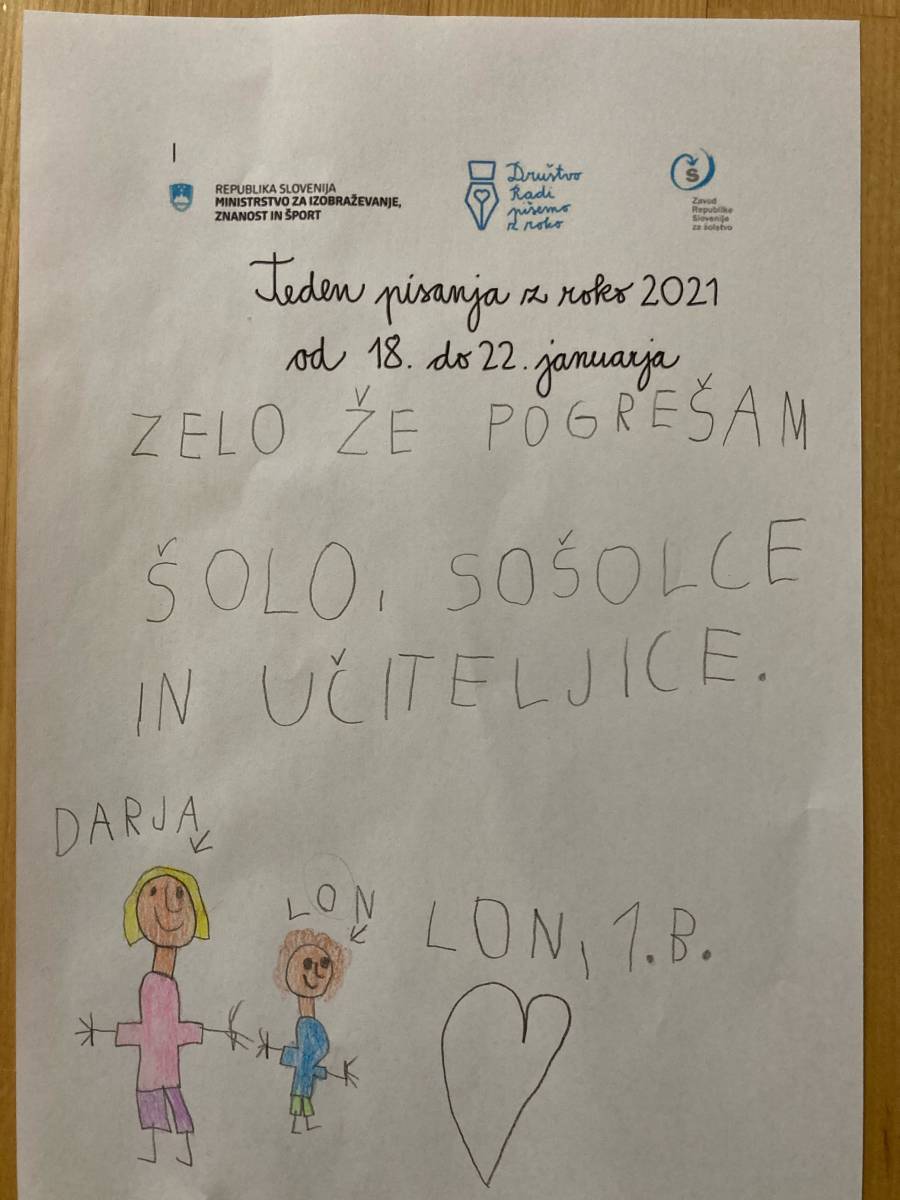 REPUBLIKA SLOVENIJA
MINISTRSTVO ZA IZOBRAŽEVANJE,
ZNANOST IN ŠPORT
Društvo
Radi
pišemo
z roko
Š
Zavod
Republike
Slovenije
za šolstvo
Teden pisanja z roko 2021
od 18. do 22. januarja
ZELO ŽE POGREŠAM
ŠOLO, SOŠOLCE
IN UČITELJICE.
DARJA
LON
LON, 1. B.